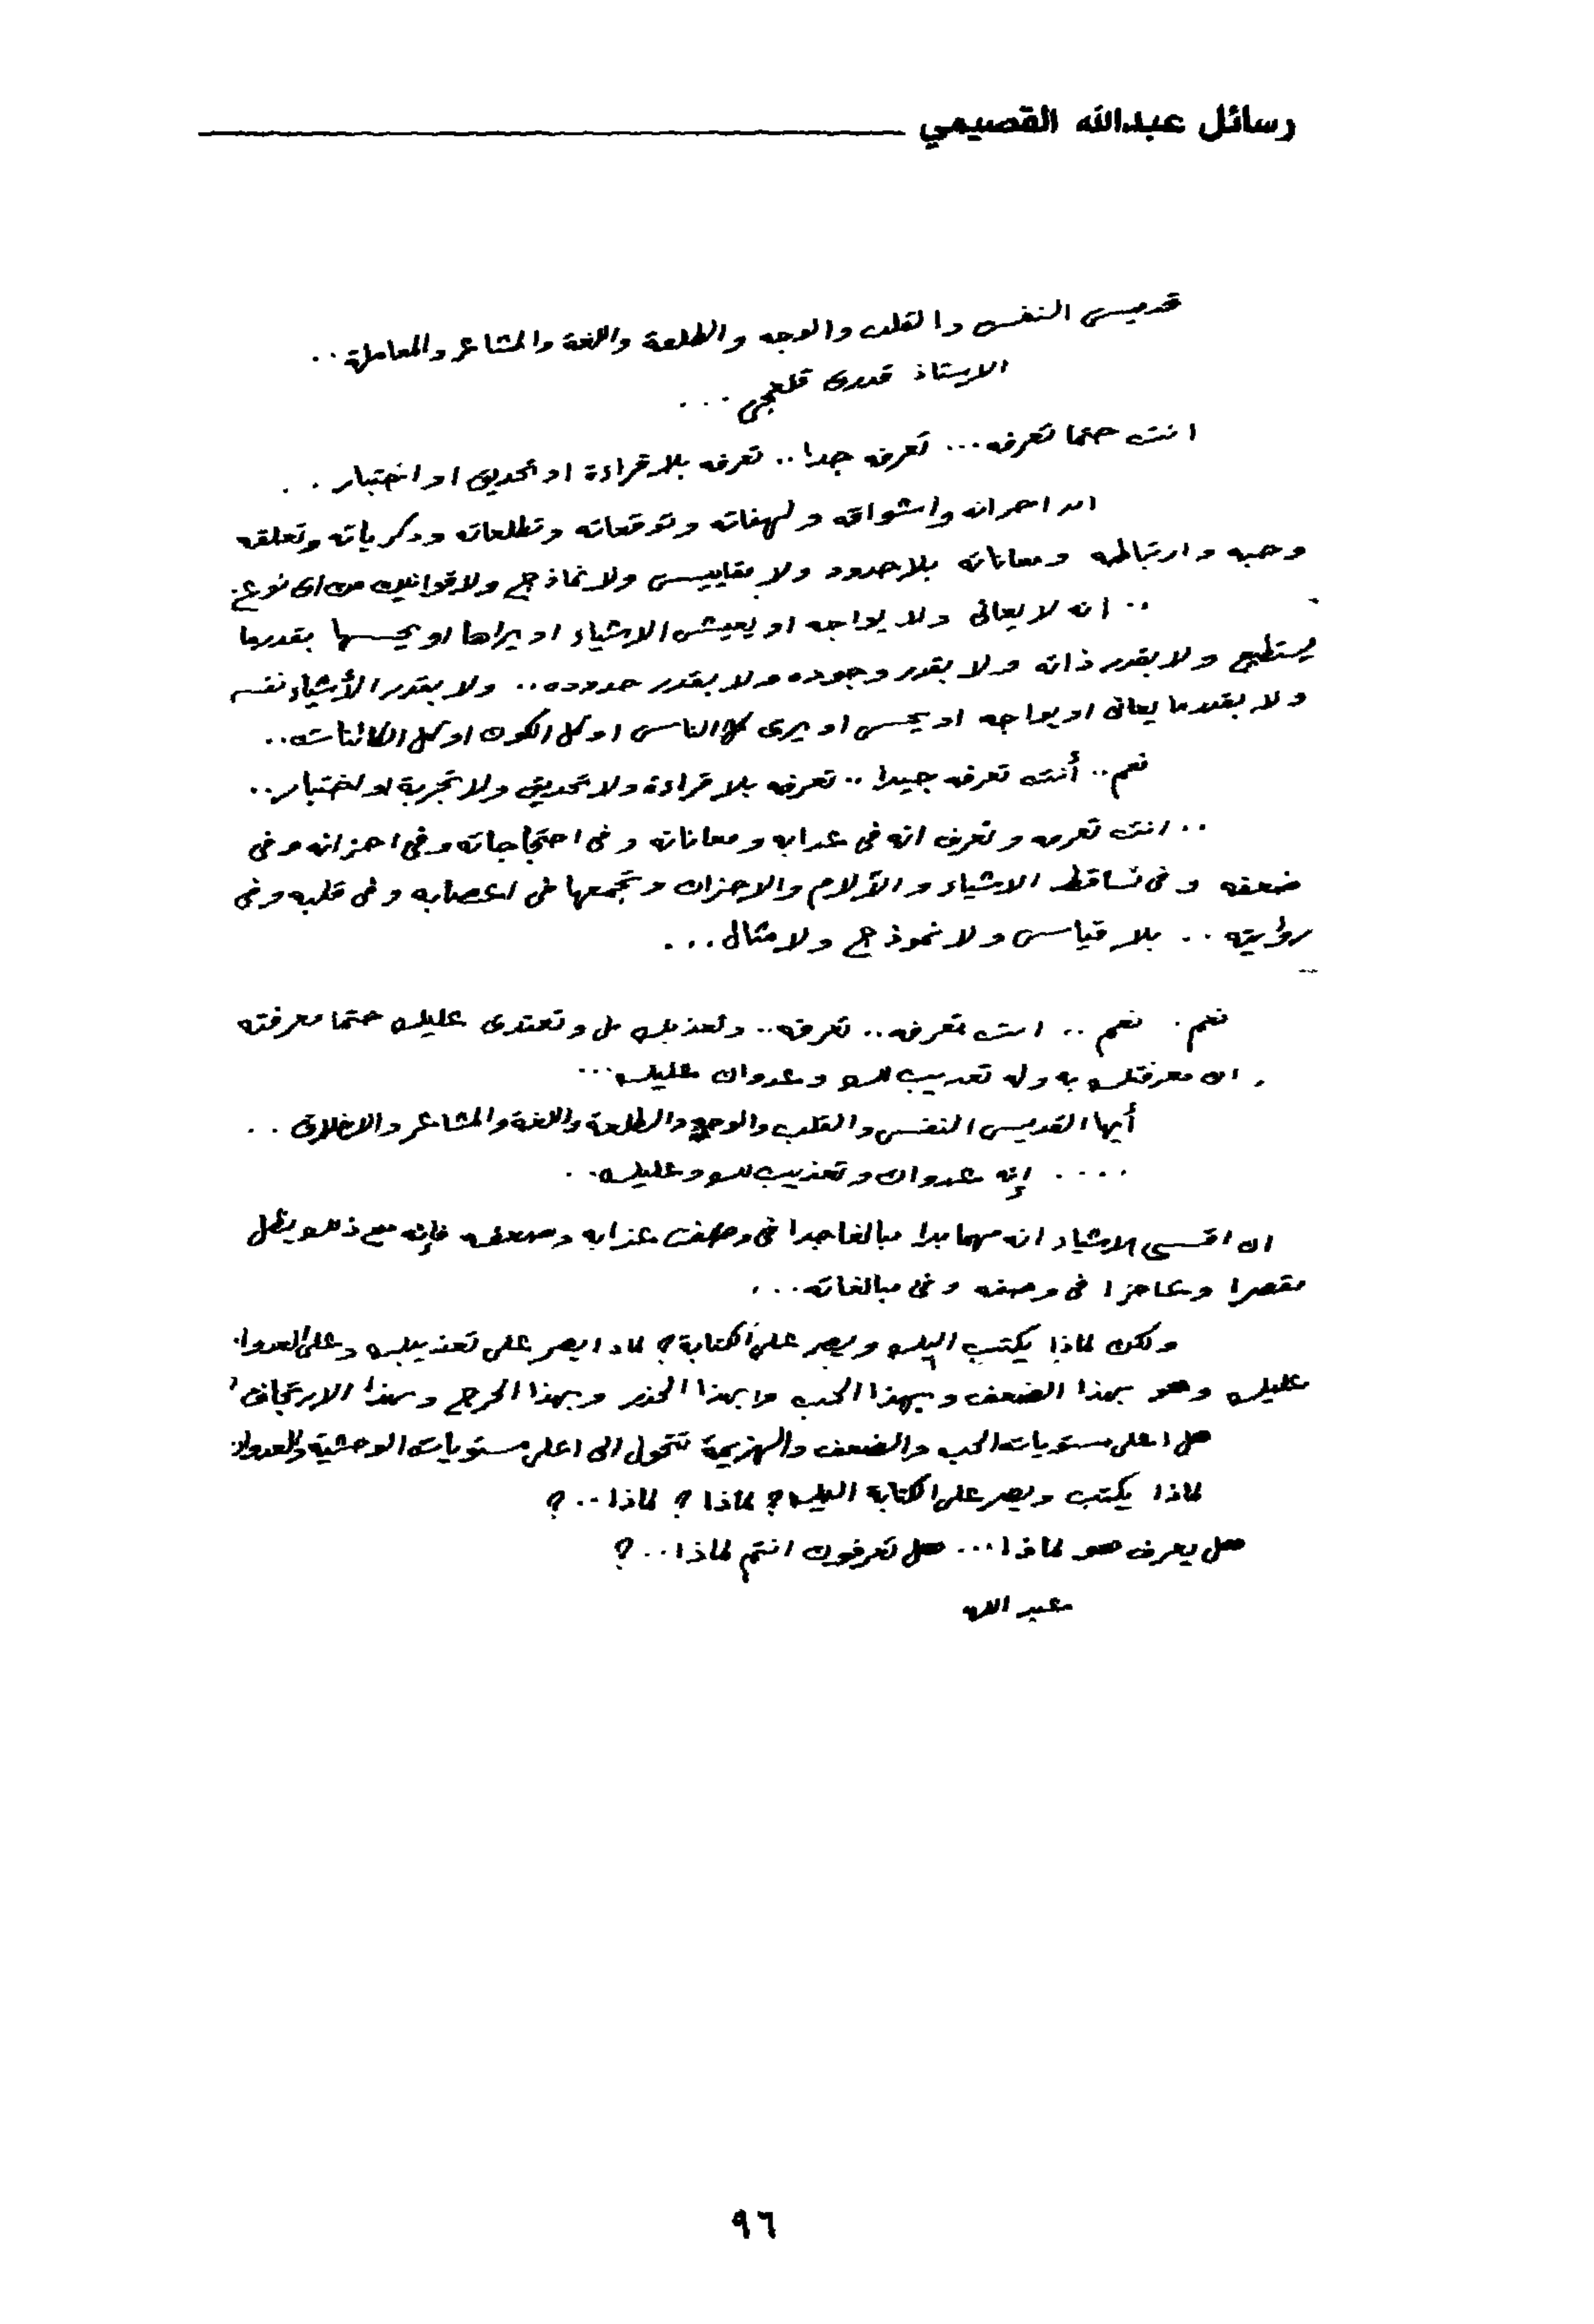 رسائل عبدالله القصيمي
قديس النفس والقلب والوجه والطلعة واللغة والمشاعر والمعاملة..
الاستاذ قدرى قلعجى ...
انت حتما تعرفه... تعرفه جدا.. تعرفه بلا قراءة او تحديق او اختبار ..
احزانه واشواقه ولهفاته وتوقعاته وتطلعاته وذكرياته وتعلقه
وحبه وارتباطه ومعاناته بلا حدود ولا مقاييس ولا نماذج ولا قوانين من اى نوع.
.. انه لا يعانى ولا يواجه او يعيش الاشياء او يراها او يحسها بقدر ما
يستطيع ولا بقدر ذاته ولا بقدر وجوده ولا بقدر حدوده.. ولا بقدر الأشياء نفسها
ولا بقدر ما يعانى او يواجه او يحس او يرى كل الناس او كل الكون او كل الكائنات..
نعم.. أنت تعرفه جيدا.. تعرفه بلا قراءة ولا تحديق ولا تجربة او اختبار..
.. انت تعرفه وتعرف انه فى عذابه ومعاناته وفى احتجاجاته وفى احزانه وفى
ضعفه وفى تساقط الاشياء والآلام والاحزان وتجمعها فى اعصابه وفى قلبه وفى
رؤيته .. بلا قياس ولا نموذج ولا مثال...
نعم. نعم .. انت تعرفه.. تعرفه.. وتعذبك بل وتعتدى عليك حتما معرفته
. ان معرفتك به وله تعذيب لك وعدوان عليك...
أيها القديس النفس والقلب والوجه والطلعة واللغة والمشاعر والاخلاق ..
.... إنه عدوان وتعذيب لك وعليك..
ان اقسى الاشياء انه مهما بدا مبالغا جدا فى وصف عذابه وضعفه فإنه مع ذلك يظل
مقصرا وعاجزا فى وصفه وفى مبالغاته...
ولكن لماذا يكتب اليك ويصر على الكتابة؟ لماذا يصر على تعذيبك وعلى العدوان
عليك وهو بهذا الضعف وبهذا الحب وبهذا الحذر وبهذا الحرج وبهذا الارتجاف؟
هل اعلى مستويات الحب والضعف والهزيمة تتحول الى اعلى مستويات الوحشية والعدوان
لماذا يكتب ويصر على الكتابة اليك؟ لماذا؟ لماذا..؟
هل يعرف هو لماذا... هل تعرفون انتم لماذا..؟
عبد الله
٩٦